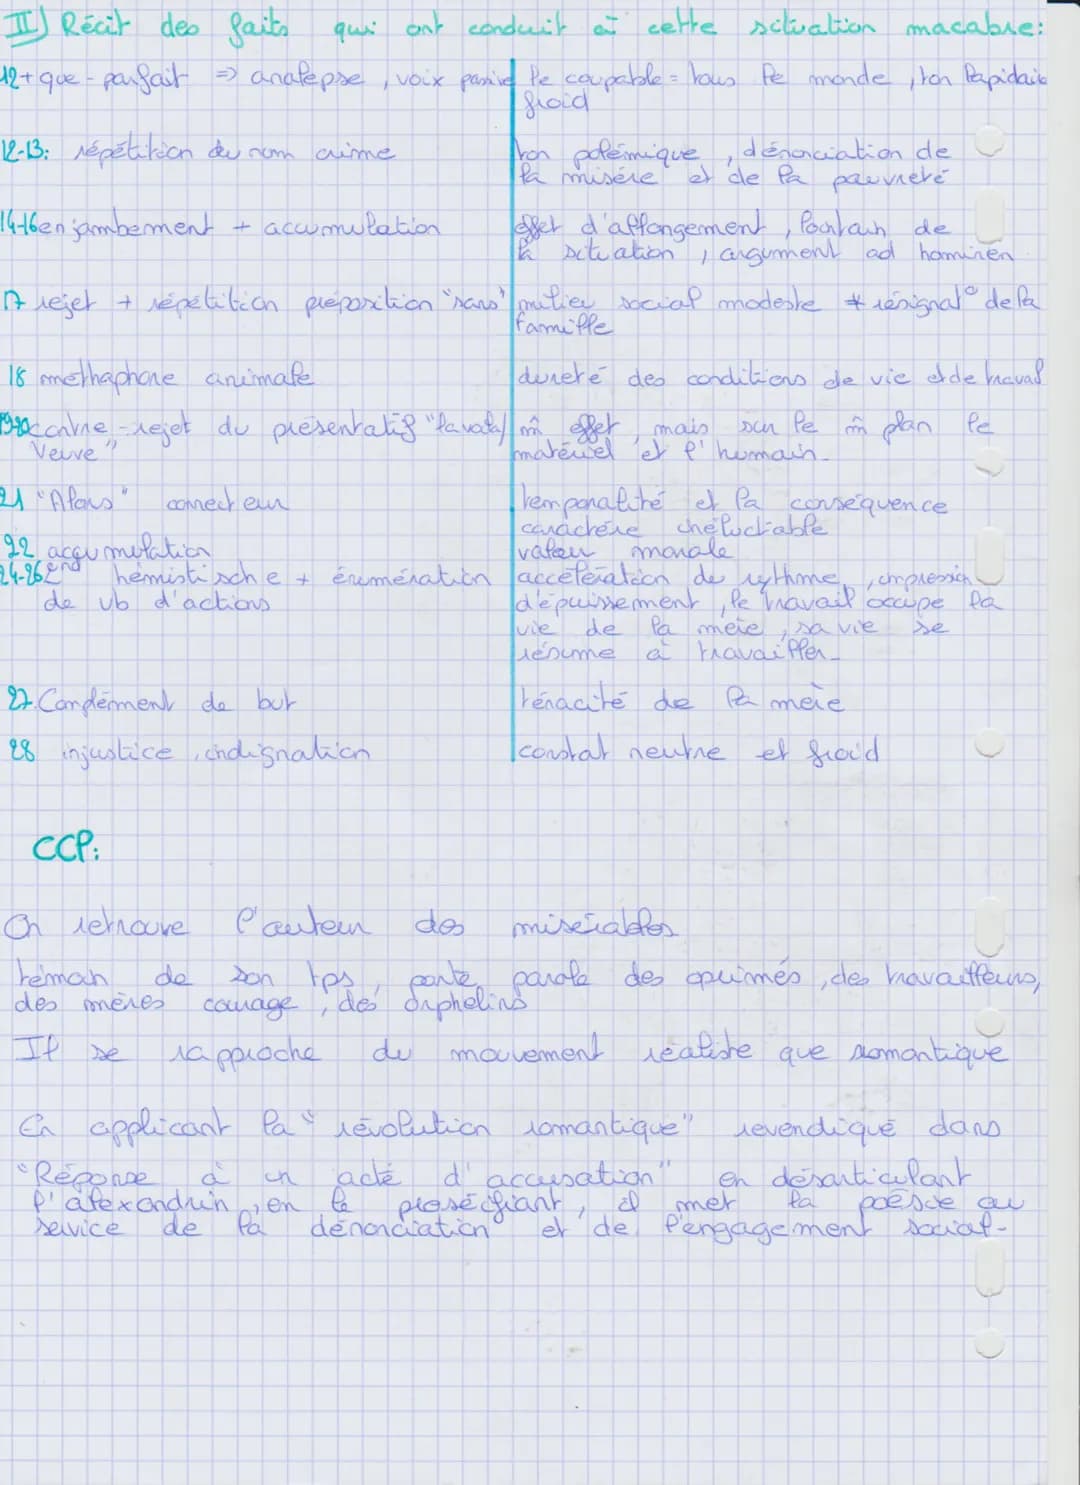 II) Récit des faits qui ont conduit à cette situation macabre:
12 + que-parfait => analepse, voix passive
le coupable = tous le monde, ton lapidaire
froid
12-13: répétition du nom crime
ton polémique, dénonciation de
la misère et de la pauvreté
14-16 enjambement + accumulation
effet d'allongement, lointain de
la situation, argument ad hominen
17 rejet + répétition préposition "sans"
milieu social modeste + résignat° de la
famille
18 methaphore animale
dureté des conditions de vie et de travail
19-20 contre-rejet du présentatif "la voilà/
veuve"
m̂ effet, mais sur le m̂ plan le
matériel et l'humain.
21 "Alors" connecteur
temporalité et la conséquence
caractère inéluctable
22 accumulation
valeur morale
24-26 2nd hémistische + énumération
de vb d'actions
accélération de rythme, impression
d'épuissement, le travail occupe la
vie de la mère, sa vie se
résume à travailler.
27. Complément de but
ténacité de la mère
28 injustice, indignation
constat neutre et froid
CCP:
On retrouve l'auteur des misérables
témoin de son tps, porte parole des oprimés, des travailleurs,
des mères courage, des orphelins
Il se rapproche du mouvement réaliste que romantique
En applicant la "révolution romantique" revendiqué dans
"Réponse à un acte d'accusation" en désarticulant
l'alexandrin, en le prosécifiant, il met la poésie au
service de la dénonciation et de l'engagement social.